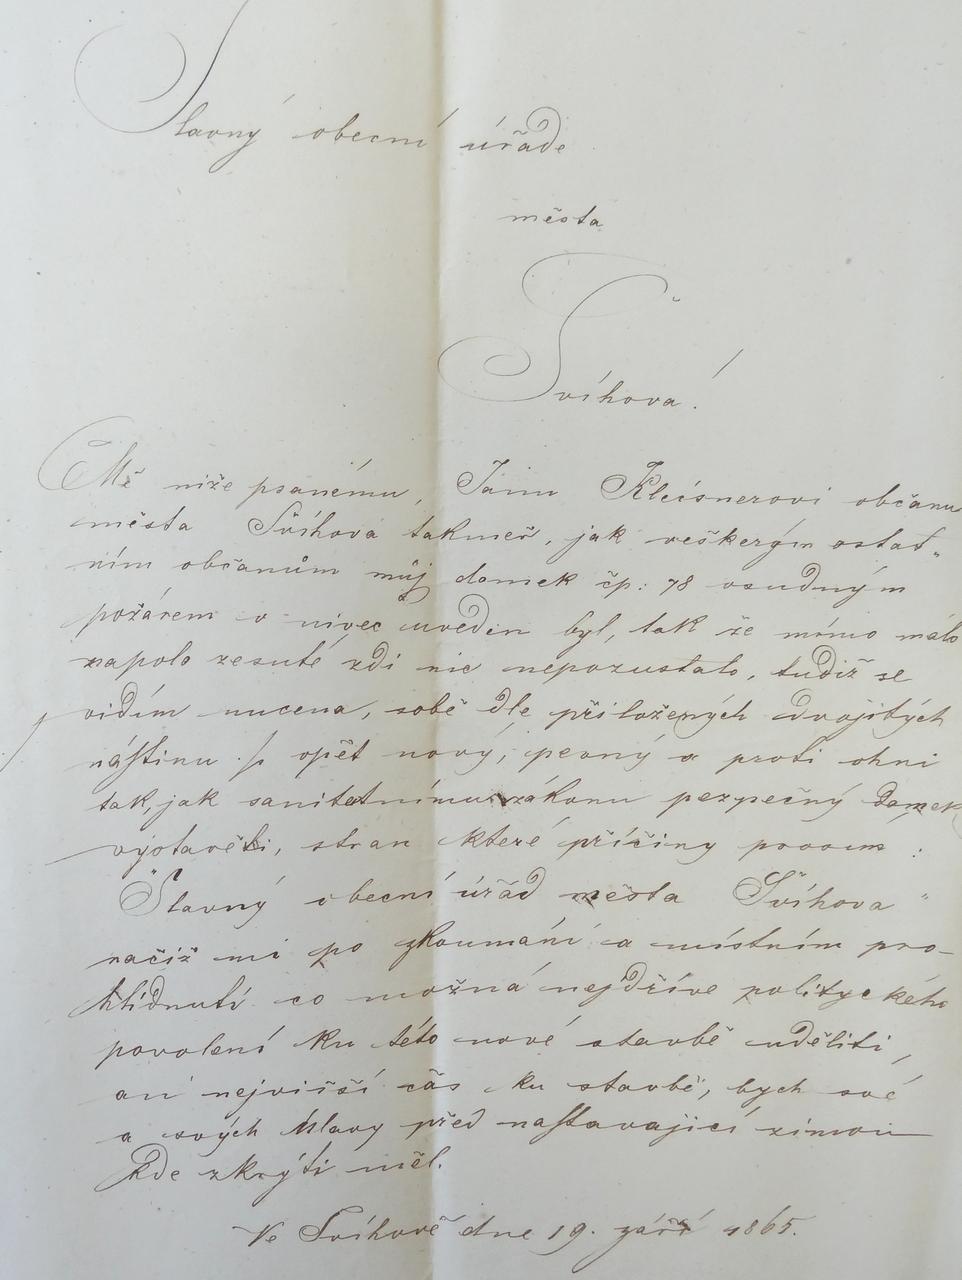 Slavný obecní úřade
města
Švíhova!
Mě níže psanému, Janu Kleisnerovi občanu
města Švíhova takmeř, jak veškerým ostat„
ním občanům můj domek čp: 78 osudným
požárem v nivec uveden byl, tak že mimo málo
napolo zesuté zdi nic nepozustalo, tudiž se
vidím nucena, sobě dle přiložených dvojitých
nástinu ⁒ opět nový, pevný a proti ohni
tak, jak sanitetnímu zákonu pezpečný domek
vystavěti, stran které příčiny prosím:
"Slavný obecní úřad města Švíhova"
račiž mi po zkoumání a místním pro-
hlídnutí co možná nejdříve polityckého
povolení ku této nové stavbě uděliti,
an nejvišší čas ku stavbě, bych své
a svých hlavy před nastavající zimou
kde zkrýti měl.
Ve Švíhově dne 19. září 1865.